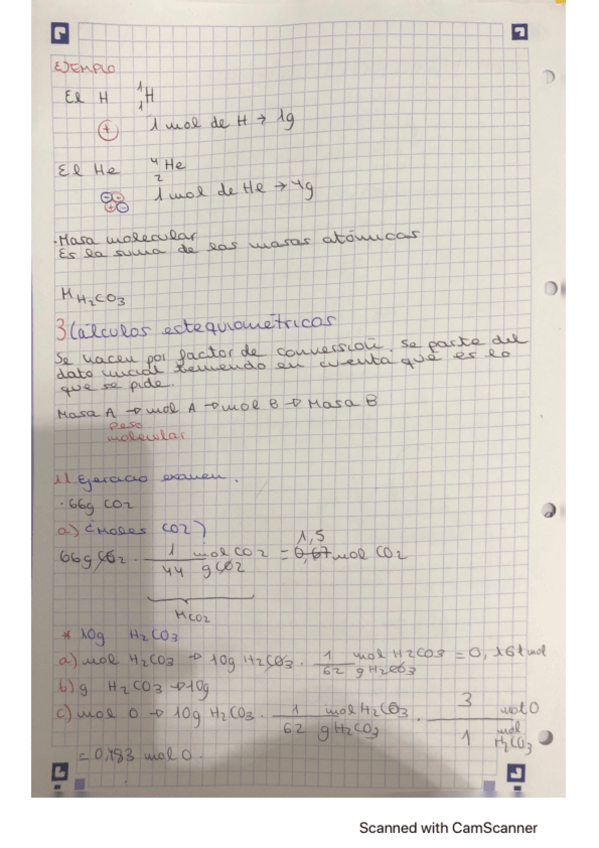 EJEMPLO
El H ¹₁H
+ 1 mol de H → 1g
El He ⁴₂He
1 mol de He → 4g
· Masa molecular
Es la suma de las masas atómicas
M H₂CO₃
3 Cálculos estequiométricos
Se hacen por factor de conversión, se parte del
dato inicial teniendo en cuenta que es lo
que se pide.
Masa A → mol A → mol B → Masa B
Peso
molecular
11. Ejercicio examen.
· 66g CO2
a) ¿Moles CO2?
66g CO2 · 1 mol CO2 / 44 g CO2 = 0,67 1,5 mol CO2
M CO2
* 10g H₂CO₃
a) mol H₂CO₃ → 10g H₂CO₃ · 1 mol H2CO3 / 62 g H₂CO₃ = 0,161 mol
b) g H₂CO₃ → 10g
c) mol O → 10g H₂CO₃ · 1 mol H₂CO₃ / 62 g H₂CO₃ · 3 mol O / 1 mol H₂CO₃
= 0,483 mol O.
Scanned with CamScanner